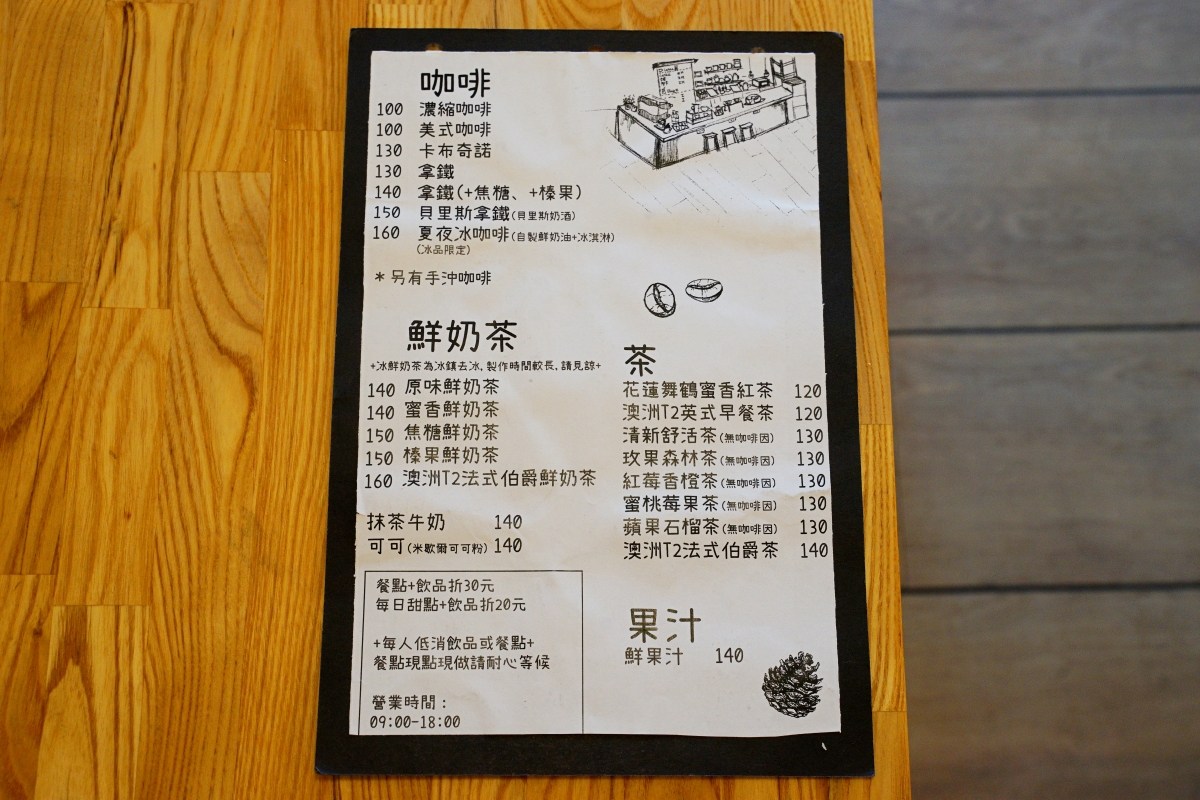 咖啡
100 濃縮咖啡
100 美式咖啡
130 卡布奇諾
130 拿鐵
140 拿鐵(+焦糖、+榛果)
150 貝里斯拿鐵(貝里斯奶酒)
160 夏夜冰咖啡(自製鮮奶油+冰淇淋)
(冰品限定)
*另有手沖咖啡
鮮奶茶
+冰鮮奶茶為冰鎮去冰,製作時間較長,請見諒+
140 原味鮮奶茶
140 蜜香鮮奶茶
150 焦糖鮮奶茶
150 榛果鮮奶茶
160 澳洲T2法式伯爵鮮奶茶
抹茶牛奶 140
可可(米歇爾可可粉) 140
餐點+飲品折30元
每日甜點+飲品折20元
+每人低消飲品或餐點+
餐點現點現做請耐心等候
營業時間:
09:00-18:00
茶
花蓮舞鶴蜜香紅茶 120
澳洲T2英式早餐茶 120
清新舒活茶(無咖啡因) 130
玫果森林茶(無咖啡因) 130
紅莓香橙茶(無咖啡因) 130
蜜桃莓果茶(無咖啡因) 130
蘋果石榴茶(無咖啡因) 130
澳洲T2法式伯爵茶 140
果汁
鮮果汁 140